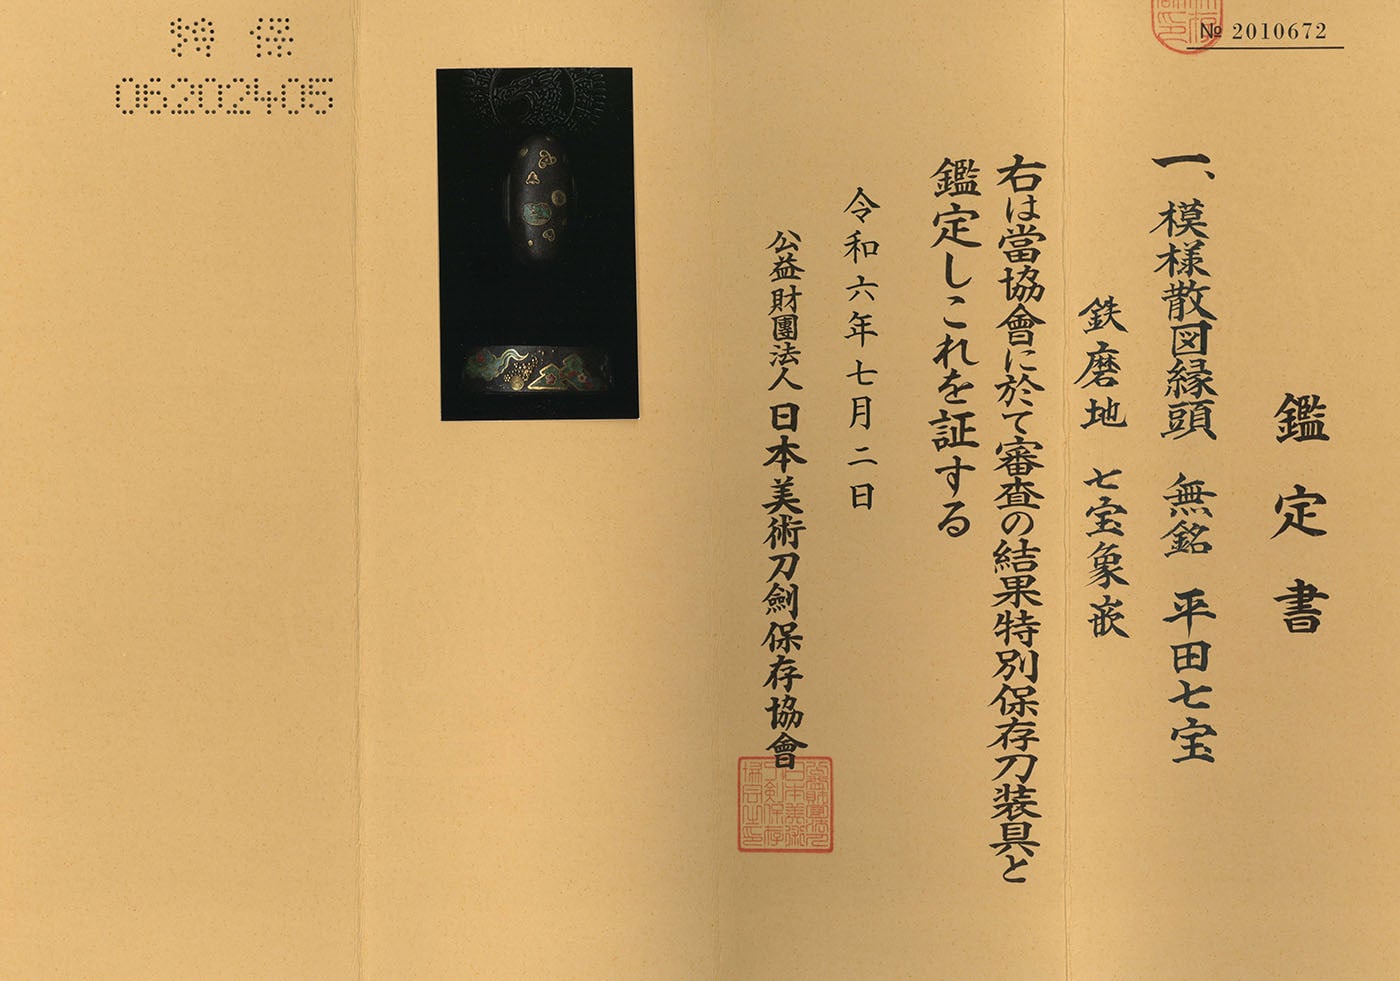 № 2010672
鑑定書
一、模様散図縁頭 無銘 平田七宝
鉄磨地 七宝象嵌
右は當協會に於て審査の結果特別保存刀装具と
鑑定しこれを証する
令和六年七月二日
公益財團法人 日本美術刀劍保存協會
特保
06202405